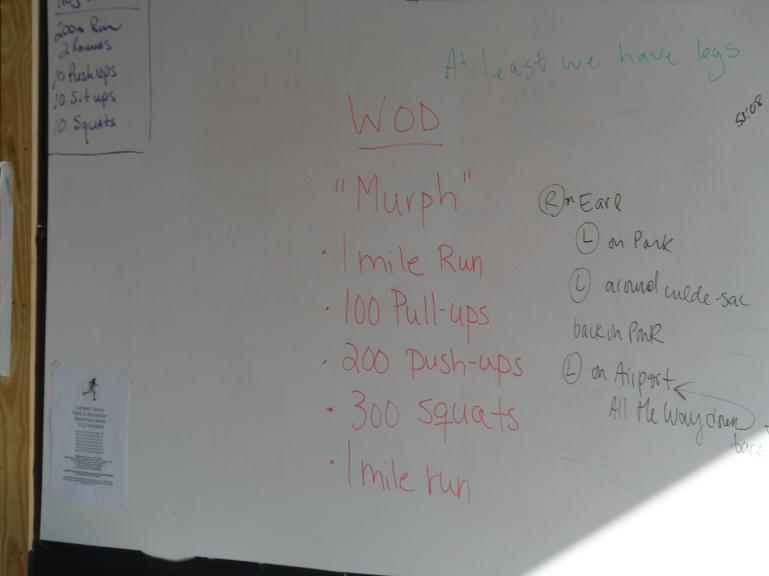 200m Run
2 Rounds
10 Push ups
10 Sit ups
10 Squats
At least we have legs
WOD
"Murph"
· 1 mile Run
· 100 Pull-ups
· 200 push-ups
· 300 squats
· 1 mile run
R on Earl
L on Park
L around culde-sac
back on Park
L on Airport
All the way down
back